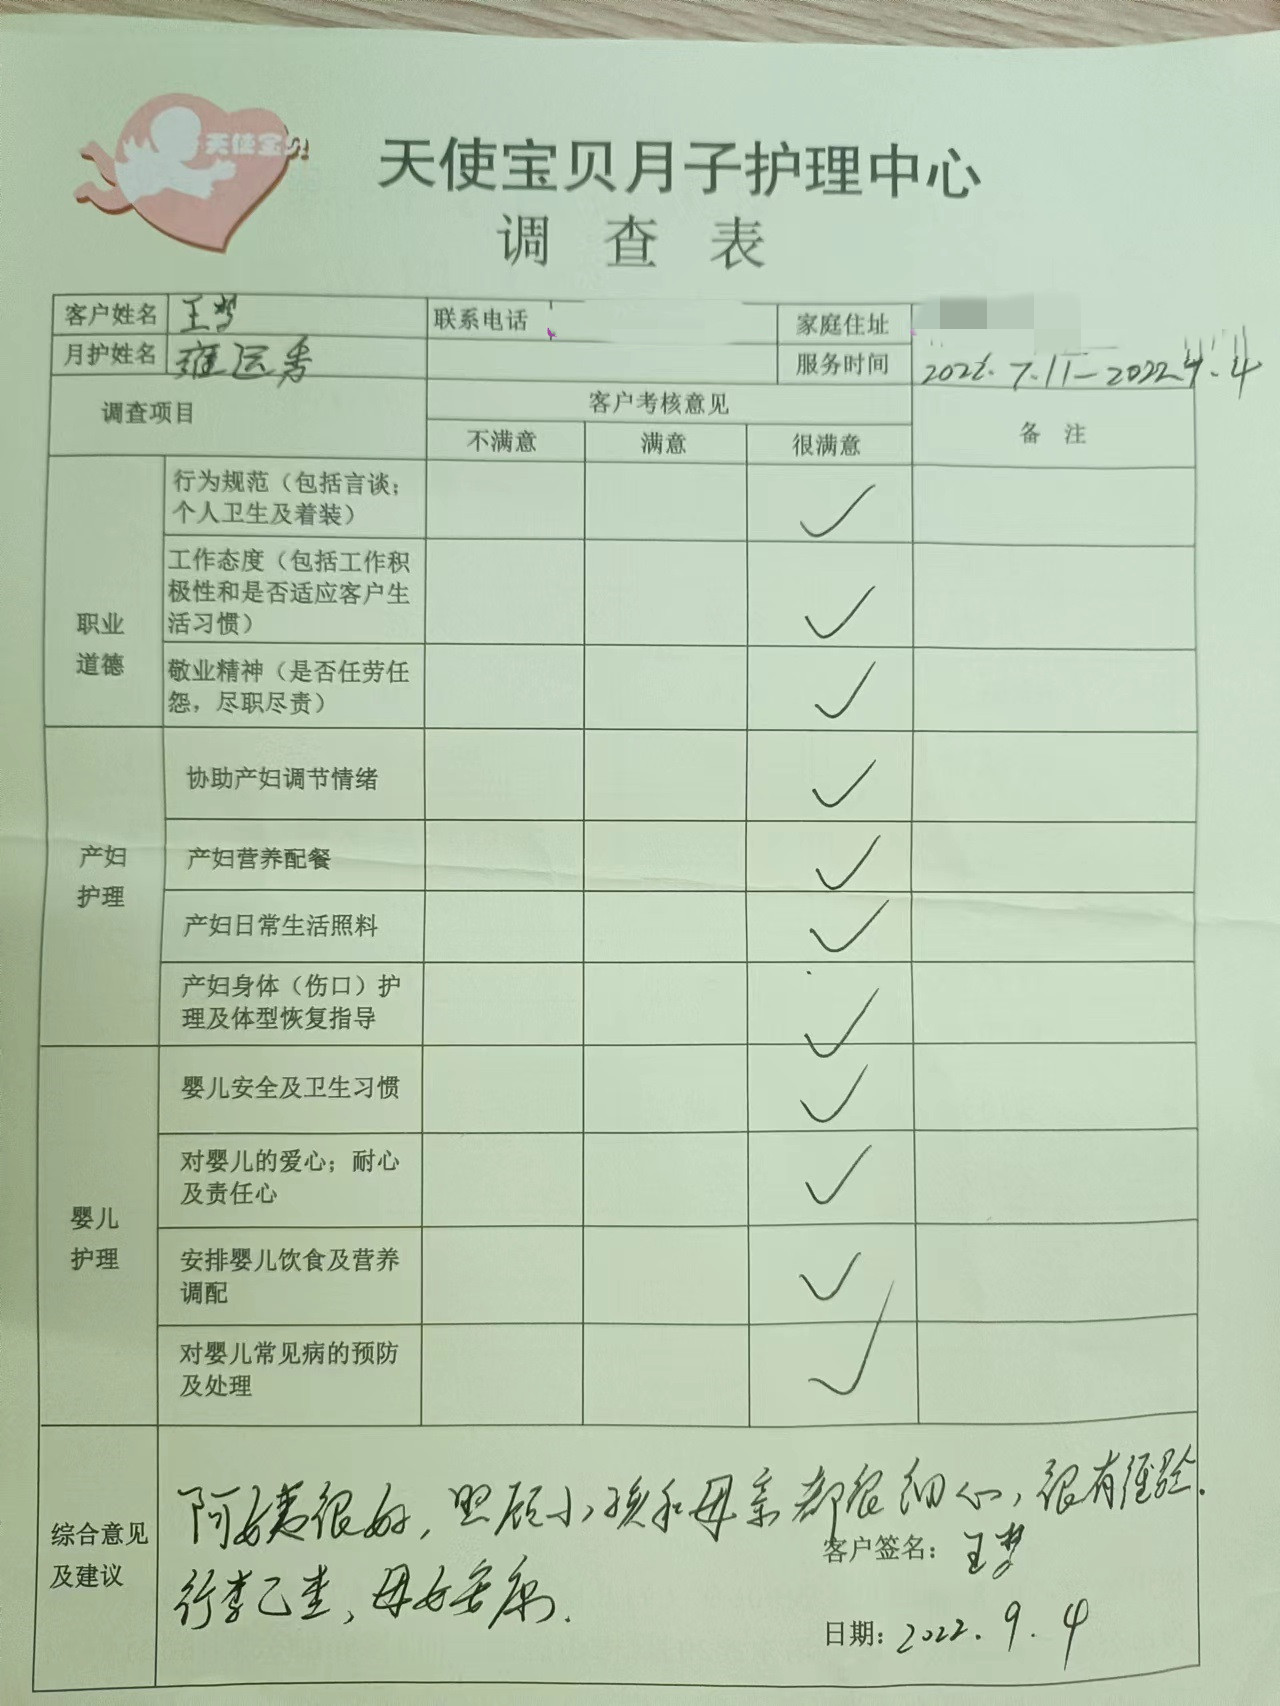 天使宝贝
天使宝贝月子护理中心
调 查 表
客户姓名 王梦 联系电话 家庭住址
月护姓名 雍运秀 服务时间 2022.7.11-2022.9.4
调查项目 客户考核意见 备 注
不满意 满意 很满意
职业
道德
行为规范（包括言谈；
个人卫生及着装）
工作态度（包括工作积
极性和是否适应客户生
活习惯）
敬业精神（是否任劳任
怨，尽职尽责）
产妇
护理
协助产妇调节情绪
产妇营养配餐
产妇日常生活照料
产妇身体（伤口）护
理及体型恢复指导
婴儿
护理
婴儿安全及卫生习惯
对婴儿的爱心；耐心
及责任心
安排婴儿饮食及营养
调配
对婴儿常见病的预防
及处理
综合意见
及建议
阿姨很好，照顾小孩和母亲都很细心，很有经验.
行李已查，母女安康.
客户签名：王梦
日期：2022.9.4